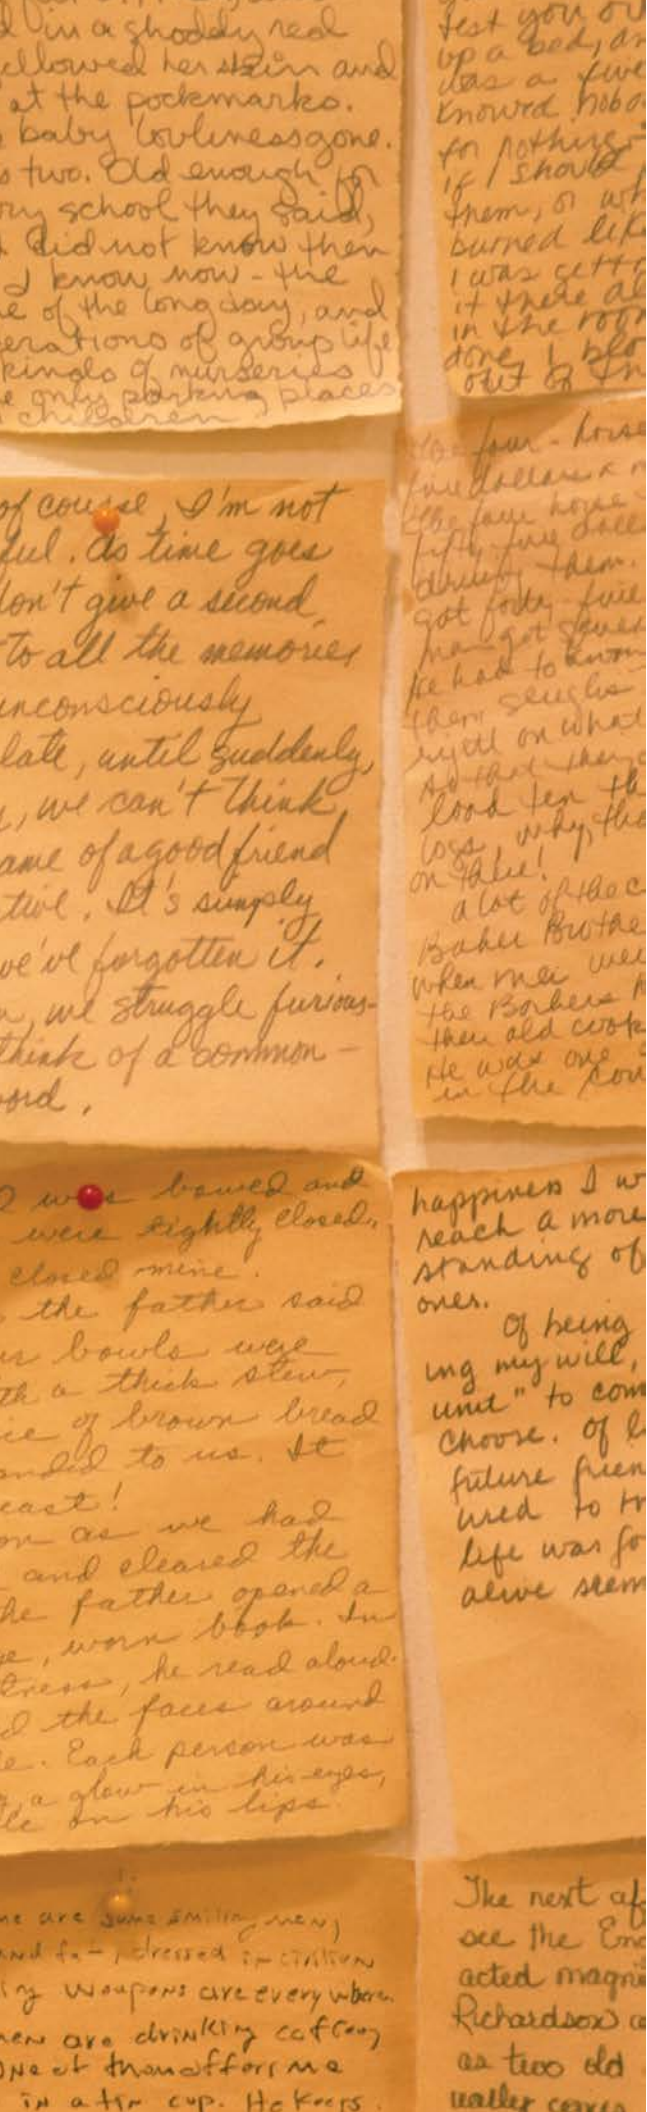 in a shoddy real
yellowed her skin and
at the pockmarks.
baby lovliness gone.
two. Old enough for
school they said,
did not know then
I know now - the
of the long day, and
of group life
kinds of nurseries
only parking places
children
of course, I'm not
ful. As time goes
don't give a second
to all the memories
unconsciously
late, until suddenly,
we can't think
ame of a good friend
tive. It's simply
we've forgotten it.
we struggle furious-
think of a common-
ord.
was bowed and
were tightly closed,
closed mine.
the father said
bowls were
th a thick stew,
of brown bread
anded to us. It
east!
as we had
and cleared the
he father opened a
worn book. In
he read aloud.
the faces around
Each person was
a glow in his eyes,
on his lips.
are some smiling men,
and fat, dressed in civilian
weapons are everywhere.
are drinking coffee,
One of them offers me
in a tin cup. He keeps
test you
up a bed, an
was a five
knowed nobo
for nothing
if I should
them, or wh
burned like
I was gett
it there
in the room
done, I blo
out of
four-horse
five dollars a m
the four horse
fifty-five
driving them.
got forty-five
man got seven
He had to know
them
on what
so that they
load ten th
logs, why, the
on there!
a lot of the c
Baker Brothe
when
the
then old cook
He was one
in the cou
happiness I w
reach a more
standing of
ones.
Of being
ing my will,
unit" to com
choose. Of l
future frien
used to tr
life was fo
alive seem
The next af
see the End
acted magni
Richardson a
as two old